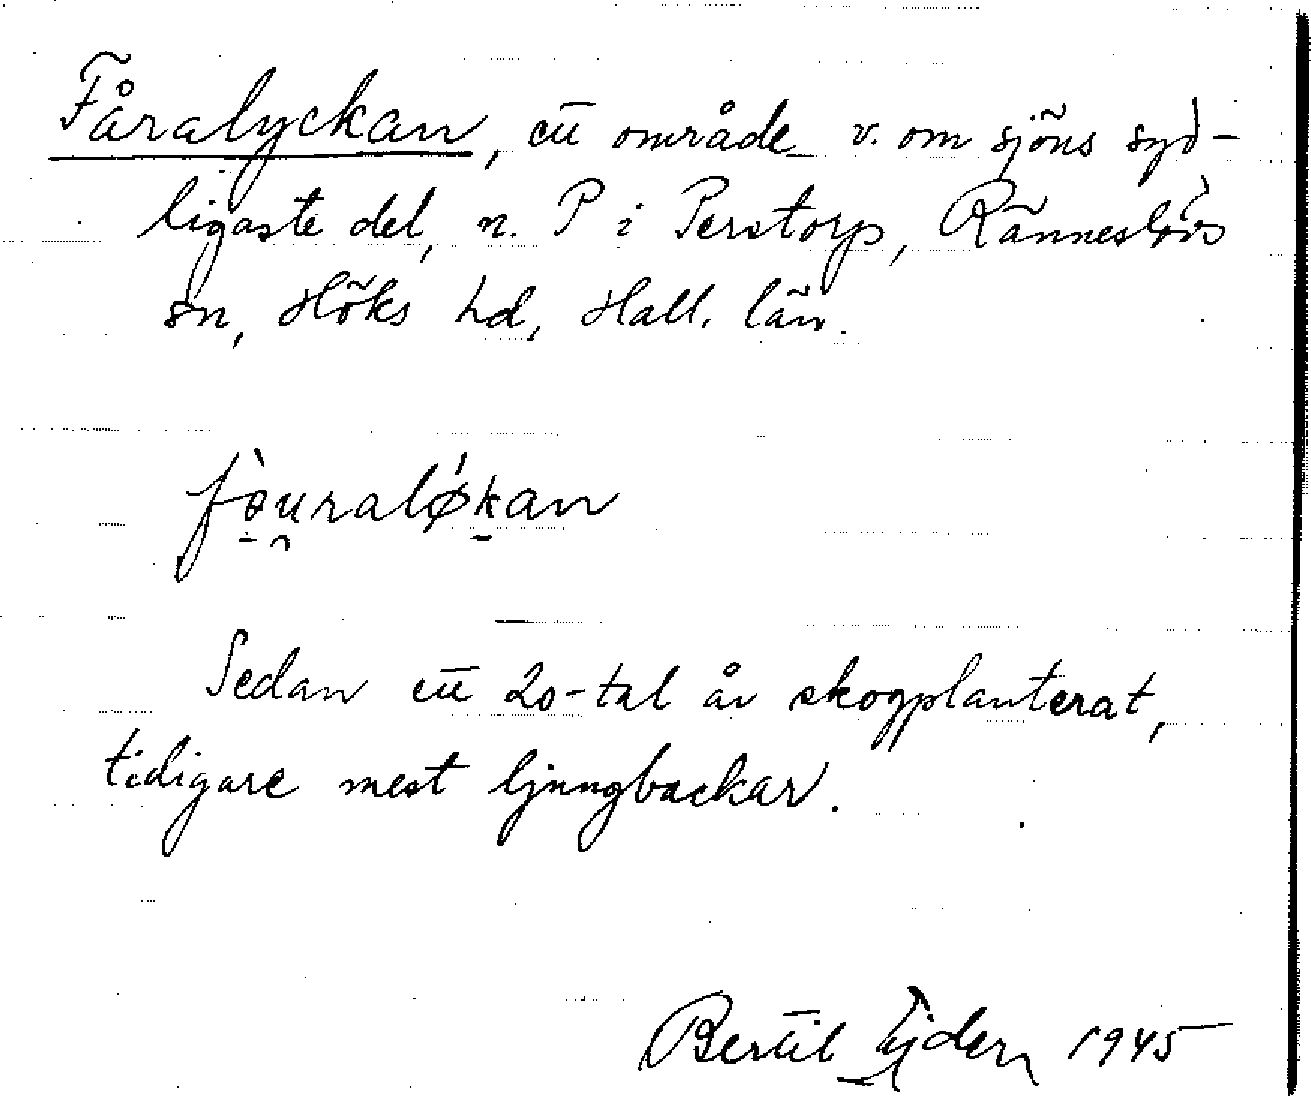 Fåralyckan, ett område v. om sjöns syd-
ligaste del, n. P i Perstorp, Ränneslövs
sn, Höks hd, Hall. län.
fə̀uralǿkan
Sedan ett 20-tal år skogplanterat,
tidigare mest ljungbackar.
Bertil Ejder 1945